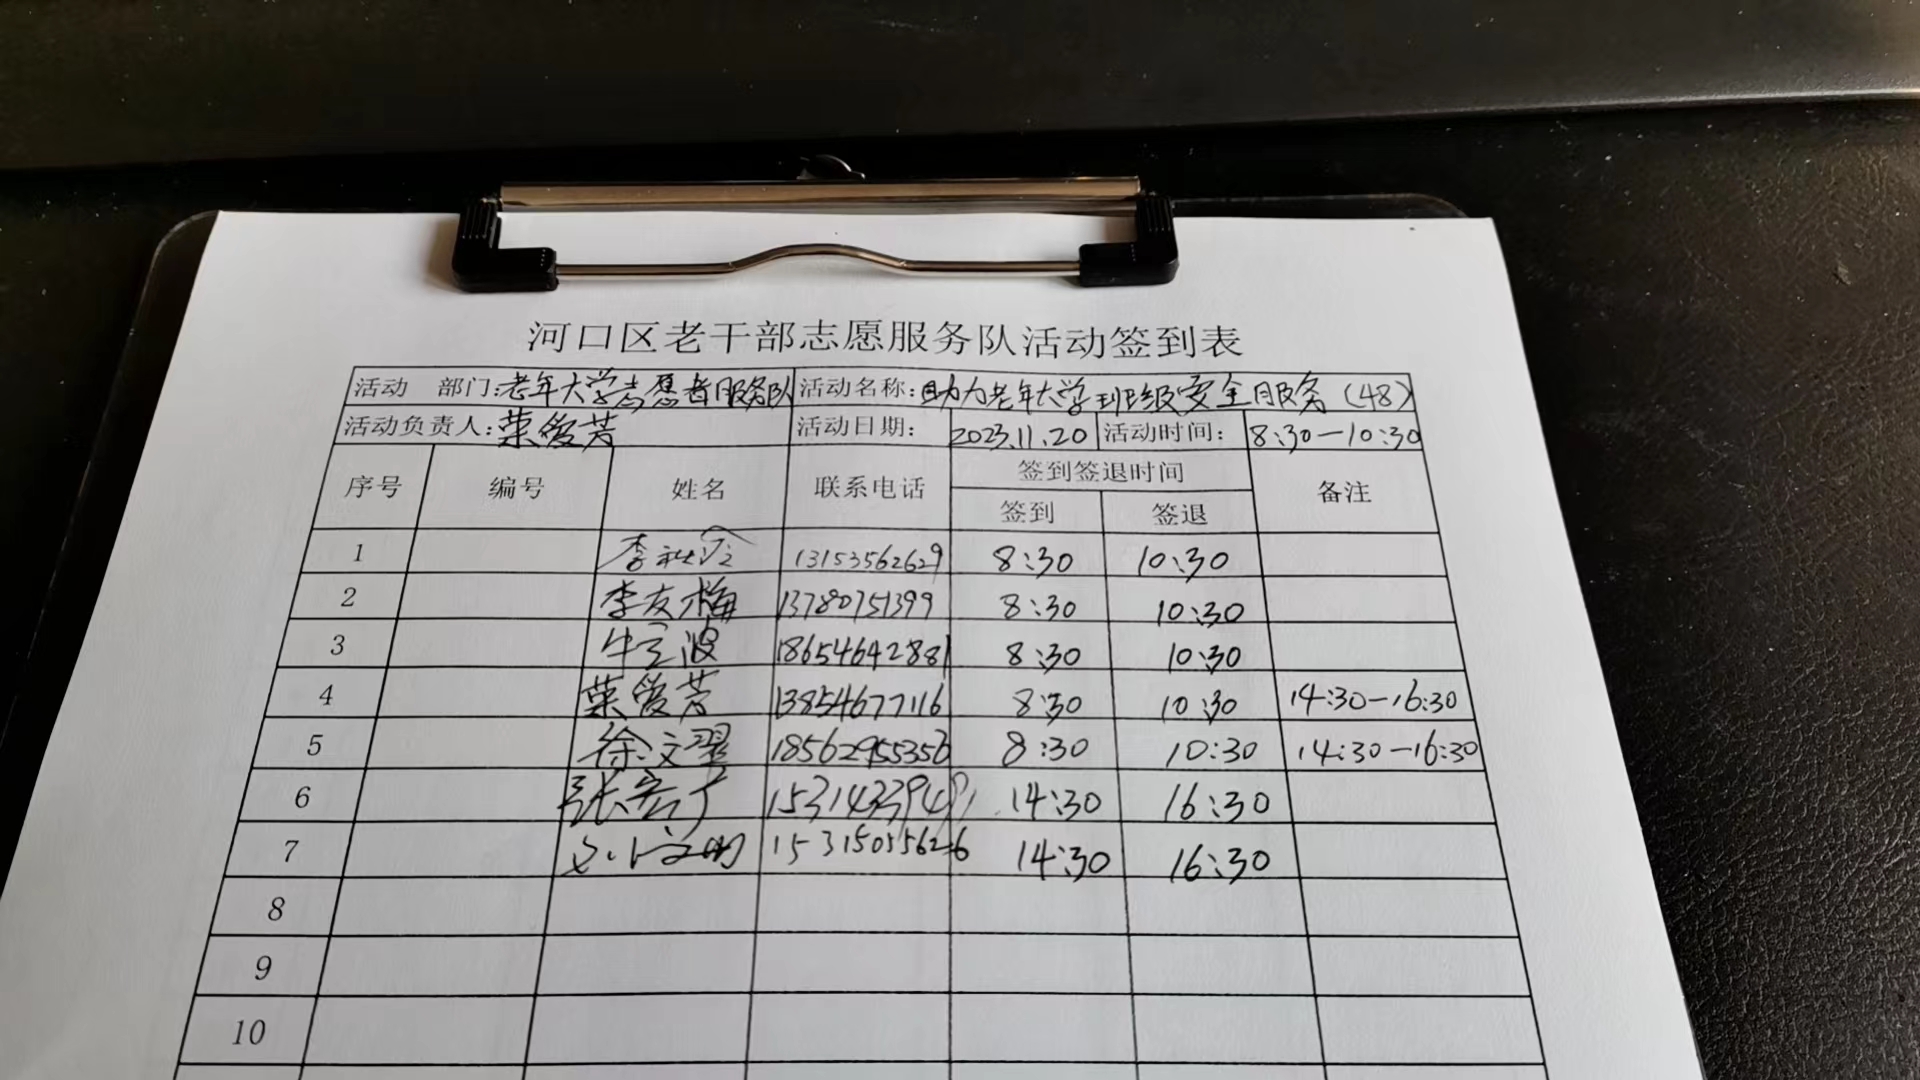 河口区老干部志愿服务队活动签到表
活动 部门:老年大学志愿者服务队 活动名称:助力老年大学班级安全服务(48)
活动负责人:荣俊芳 活动日期: 2023.11.20 活动时间: 8:30—10:30
序号 编号 姓名 联系电话 签到签退时间 备注
签到 签退
1 李 13153562629 8:30 10:30
2 李友梅 13780751399 8:30 10:30
3 牛立波 18654642881 8:30 10:30
4 荣俊芳 13854677116 8:30 10:30 14:30—16:30
5 徐文翠 18562955356 8:30 10:30 14:30—16:30
6 张 14:30 16:30
7 15315055626 14:30 16:30
8
9
10